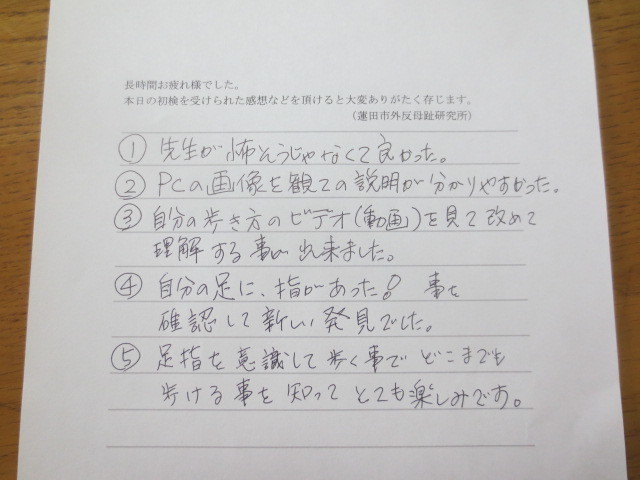 長時間お疲れ様でした。
本日の初検を受けられた感想などを頂けると大変ありがたく存じます。
(蓮田市外反母趾研究所)
① 先生が怖そうじゃなくて良かった。
② PCの画像を観ての説明が分かりやすかった。
③ 自分の歩き方のビデオ(動画)を見て改めて
理解する事が出来ました。
④ 自分の足に、指があった! 事を
確認して新しい発見でした。
⑤ 足指を意識して歩く事でどこまでも
歩ける事を知ってとても楽しみです。